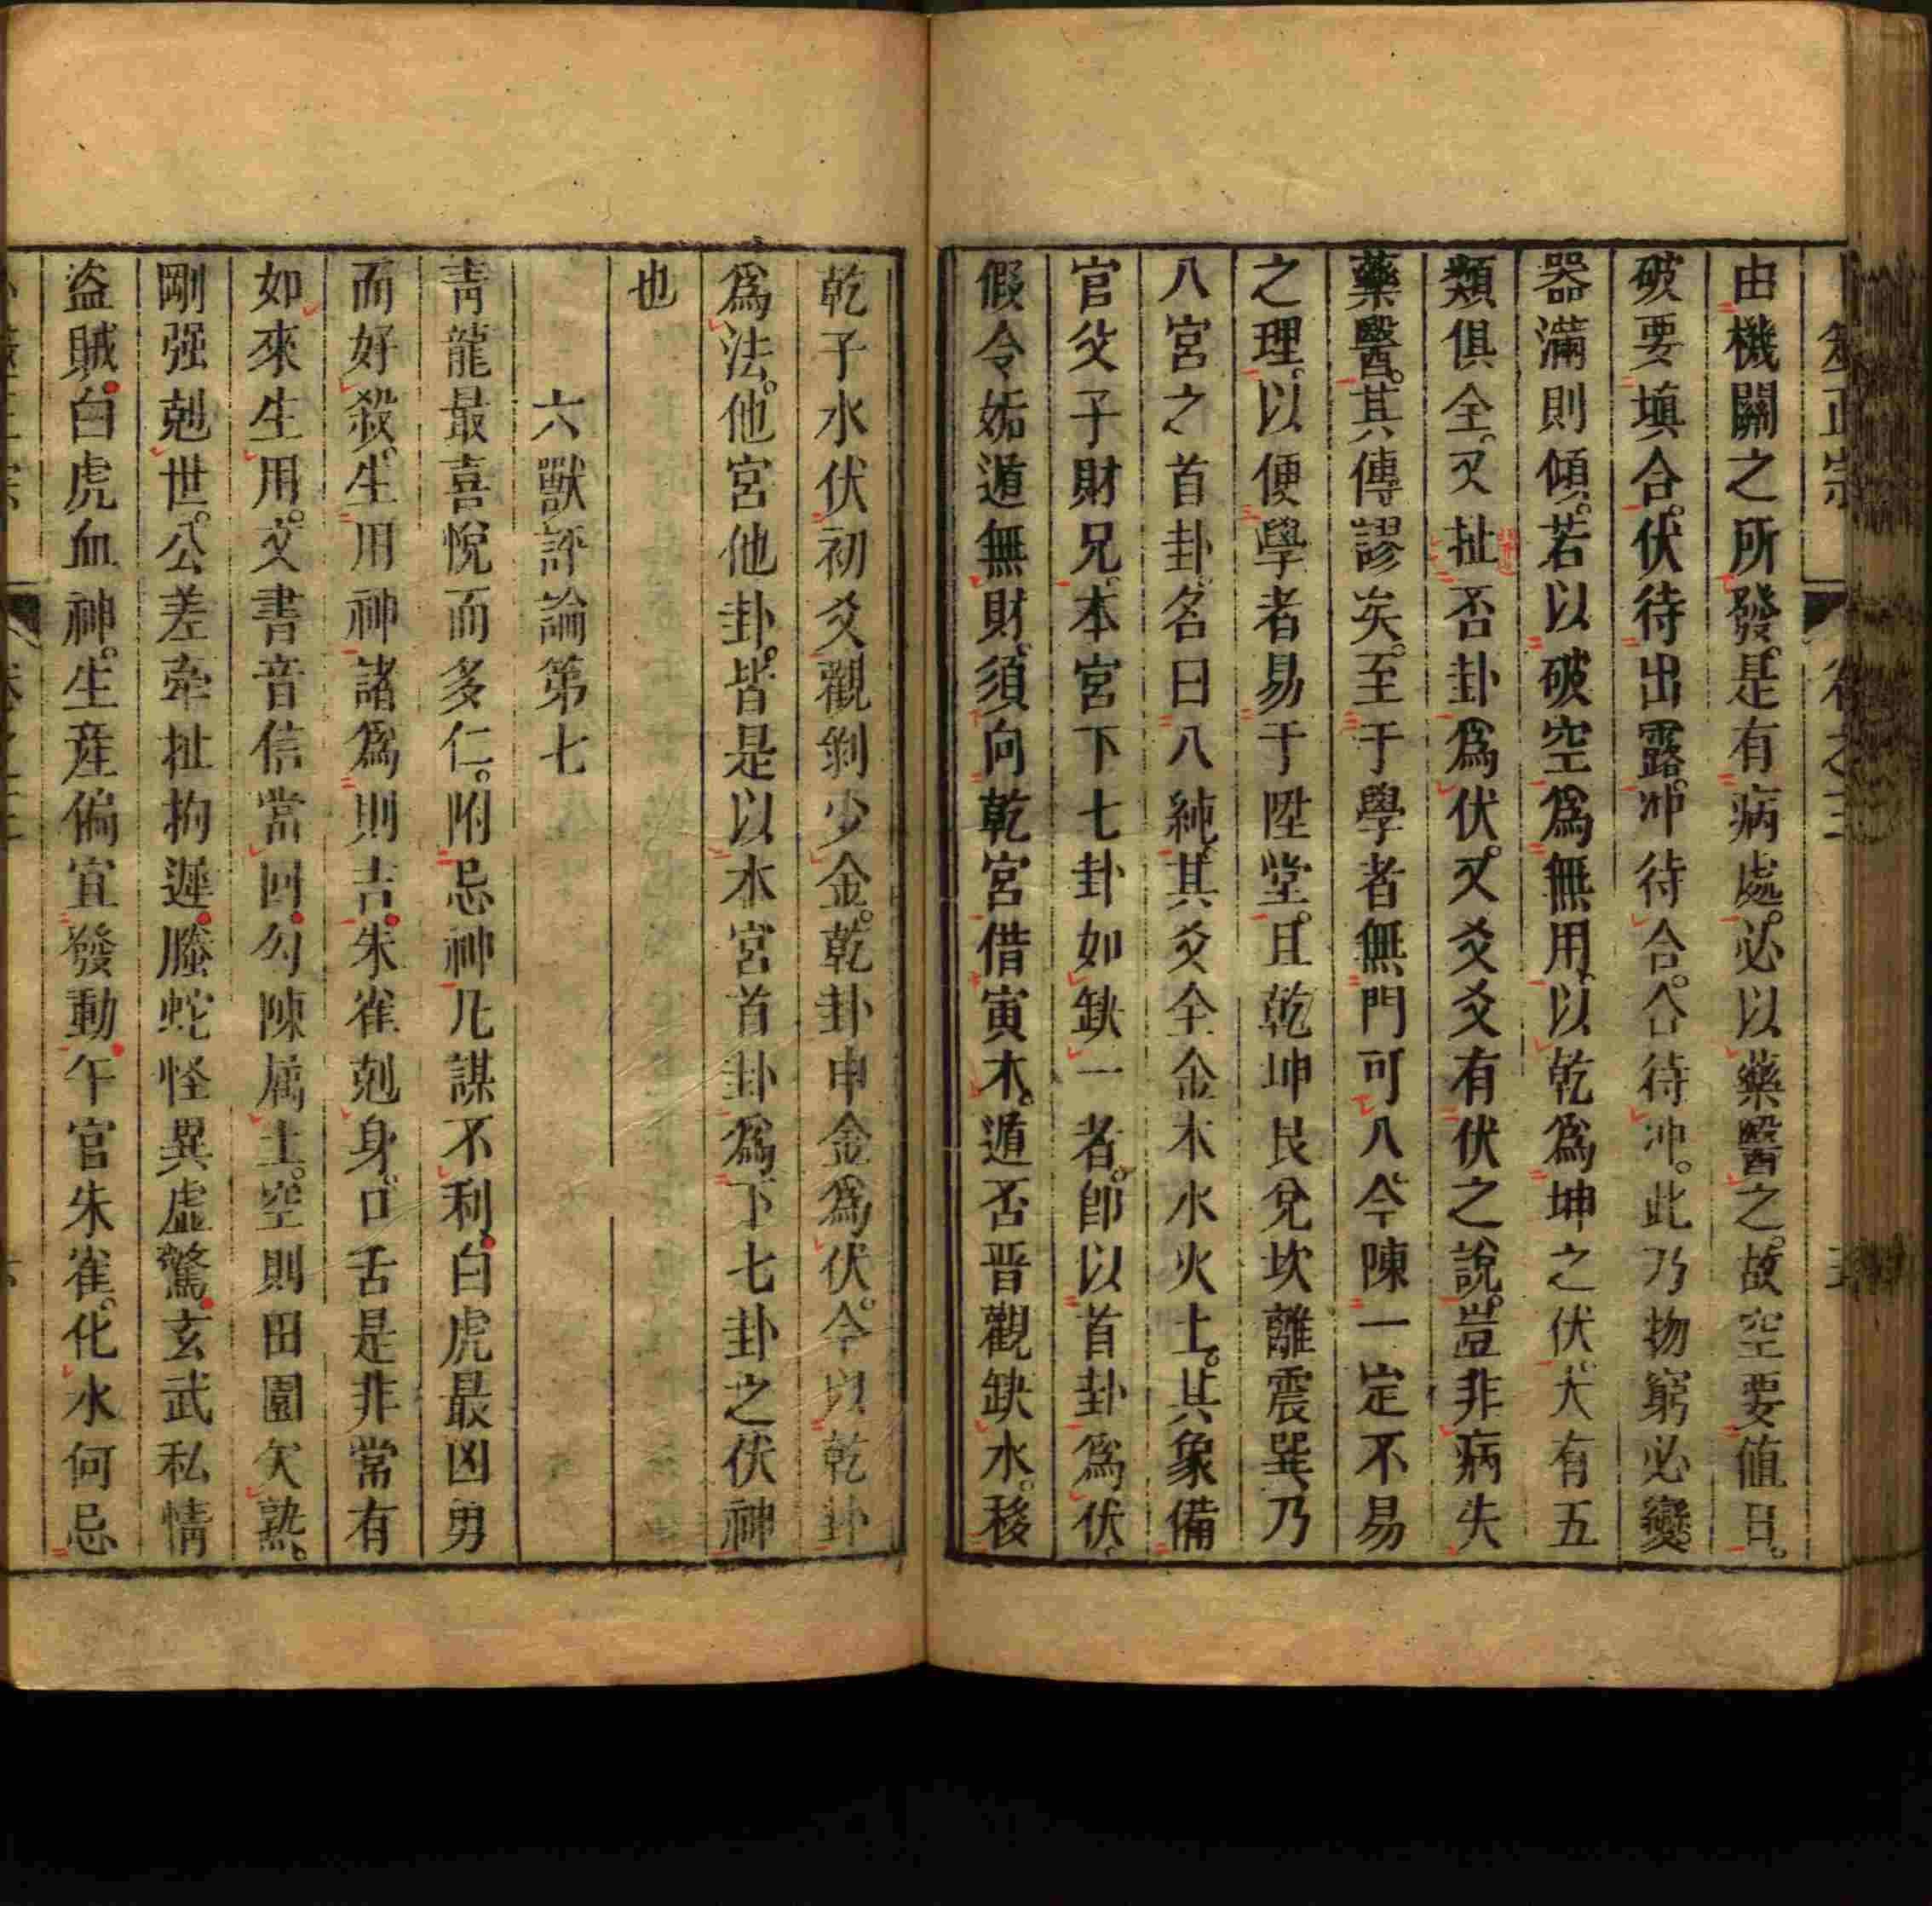 卜筮正宗 卷之三
由機關之所發。是有病處。必以藥醫之。故空要值日。
破要填合。伏待出露。冲待合。合待冲。此乃物窮必變。
器滿則傾。若以破空爲無用。以乾爲坤之伏。大有五
類俱全。又扯否卦爲伏。又爻爻有伏之說。豈非病失
藥醫。其傳謬矣。至于學者無門可入。今陳一定不易
之理。以便學者易于陞堂。且乾坤艮兌坎離震巽乃
八宮之首卦。名曰八純。其爻全金木水火土。其象備
官父子財兄。本宮下七卦如缺一者。卽以首卦爲伏。
假令姤遁無財。須向乾宮借寅木。遁否晋觀缺水。移
乾子水伏初爻。觀剝少金。乾卦申金爲伏。今以乾卦
爲法。他宮他卦。皆是以本宮首卦爲下七卦之伏神
也
六獸評論第七
靑龍最喜悅而多仁。附忌神凡謀不利。白虎最凶勇
而好殺。生用神諸爲則吉。朱雀剋身。口舌是非常有
如來生用。文書音信當回。勾陳属土。空則田園欠熟。
剛强剋世。公差牽扯拘遲。螣蛇怪異虛驚。玄武私情
盜賊。白虎血神。生產偏宜發動。午官朱雀。化水何忌